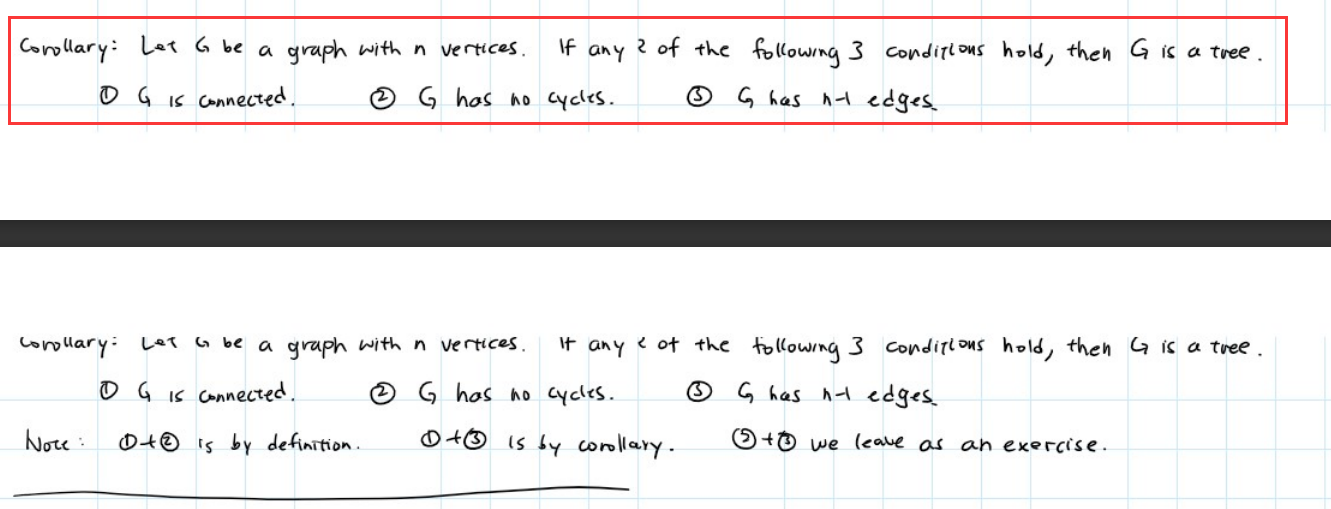 Corollary: Let G be a graph with n vertices. If any 2 of the following 3 conditions hold, then G is a tree.
① G is connected. ② G has no cycles. ③ G has n-1 edges.
Corollary: Let G be a graph with n vertices. If any 2 of the following 3 conditions hold, then G is a tree.
① G is connected. ② G has no cycles. ③ G has n-1 edges.
Note: ①+② is by definition. ①+③ is by corollary. ②+③ we leave as an exercise.